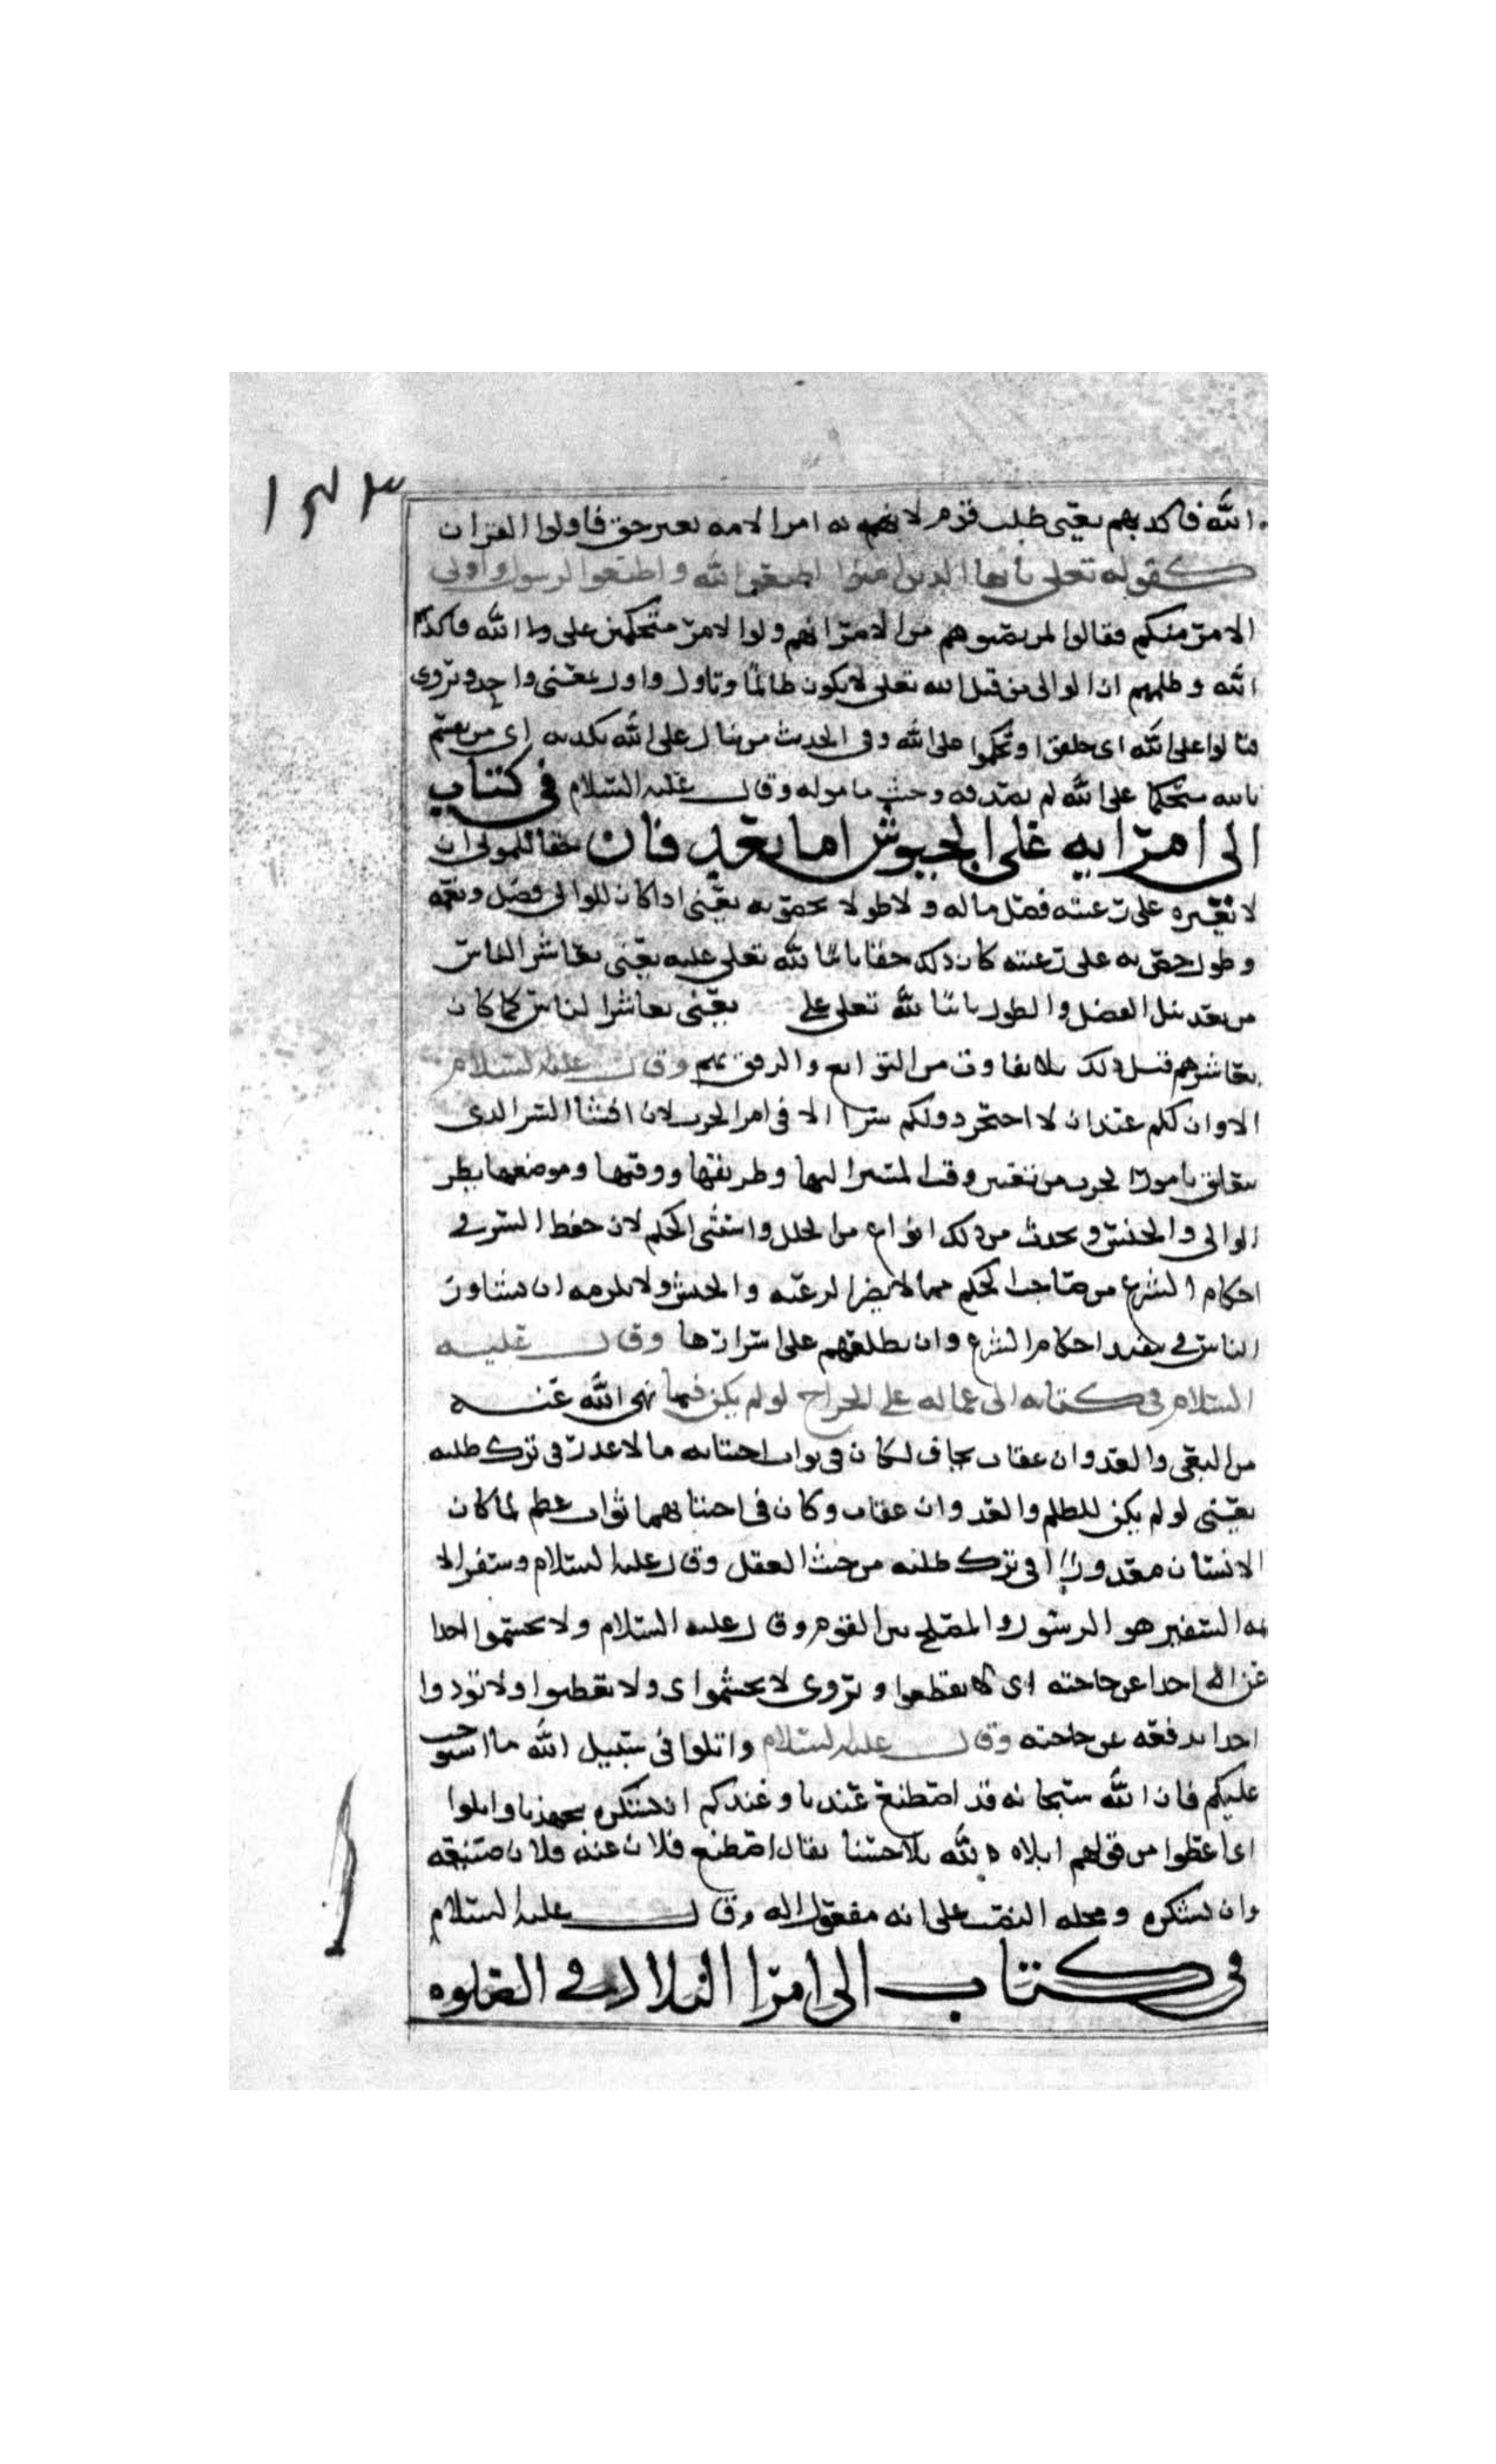 ١٤٣
الله فاكذبهم يعني طلب قوم لانفسهم امر الامه بغير حق فاولوا القران
كقوله تعلى يا ايها الذين امنوا اطيعوا الله واطيعوا الرسول واولى
الامر منكم فقالوا لمن نصبوهم من الامرا انهم ولوا الامر متحكمين على الله فاكذبهم
الله وظلمهم ان الوالى من قبل الله تعلى لا يكون ظالما وتاول واول بمعنى واحد ويروى
فتالوا على الله اى حلفوا وتحكموا على الله وفى الحديث من يتال على الله يكذبه اى من يقسم
بالله متحكما على الله لم يصدقه وخيب مأموله وقال عليه السلام فى كتاب
الى امرايه على الجيوش اما بعد فان حقا على الوالى ان
لا يغيره على رعيته فضل ناله ولا طول خص به يعنى اذا كان للوالى فضل ونعمه
وطول خص به على رعيته كان ذلك حقا لله تعلى عليه يعنى يعاشر الناس
من بعد نيل الفضل والطول لله تعلى على يعنى يعاشر الناس كما كان
يعاشرهم قبل ذلك بلا تفاوت من التواضع والرفق بهم وقال عليه السلام
الا وان لكم عندى ان لا احتجز دونكم سرا الا فى امر الحرب لان افشا السر الذى
يتعلق بامور الحرب من وقت المسير اليها وطريقها ووقتها وموضعها يضر
الوالى والجيش ويحدث من ذلك انواع من الخلل واستثنى الحكم لان حفظ السر فى
احكام الشرع من صاحب الحكم مما لا يضر الرعيه والجيش ولا يلزمه ان يشاور
الناس فى تنفيذ احكام الشرع وان يطلعهم على اسرارها وقال عليه
السلام فى كتابه الى عماله على الخراج لو لم يكن فيما نهى الله عنه
من البغى والعدوان عقاب يخاف لكان فى ثواب اجتنابه ما لا عذر فى ترك طلبه
يعنى لو لم يكن للظلم والعدوان عقاب وكان فى اجتنابهما ثواب عظيم لما كان
الانسان معذورا فى ترك طلبه من حيث العقل وقال عليه السلام وسفرا الا
مه السفير هو الرسول والمصلح بين القوم وقال عليه السلام ولا تحسموا احدا
عن احدا عن حاجته اى لا تقطعوا ويروى لا تحشموا اى ولا تغضبوا ولا تؤذوا
احدا بدفعه عن حاجته وقال عليه السلام وابلوا فى سبيل الله ما استوجب
عليكم فان الله سبحانه قد اصطنع عندنا وعندكم ان نشكره بجهدنا وابلوا
اى اعطوا من قولهم ابلاه الله بلا حسنا يقال اصطنع فلان عند فلان صنيعه
وان نشكره ومحله النصب على انه مفعول له وقال عليه السلام
فى كتاب الى امرا البلاد فى الصلوه